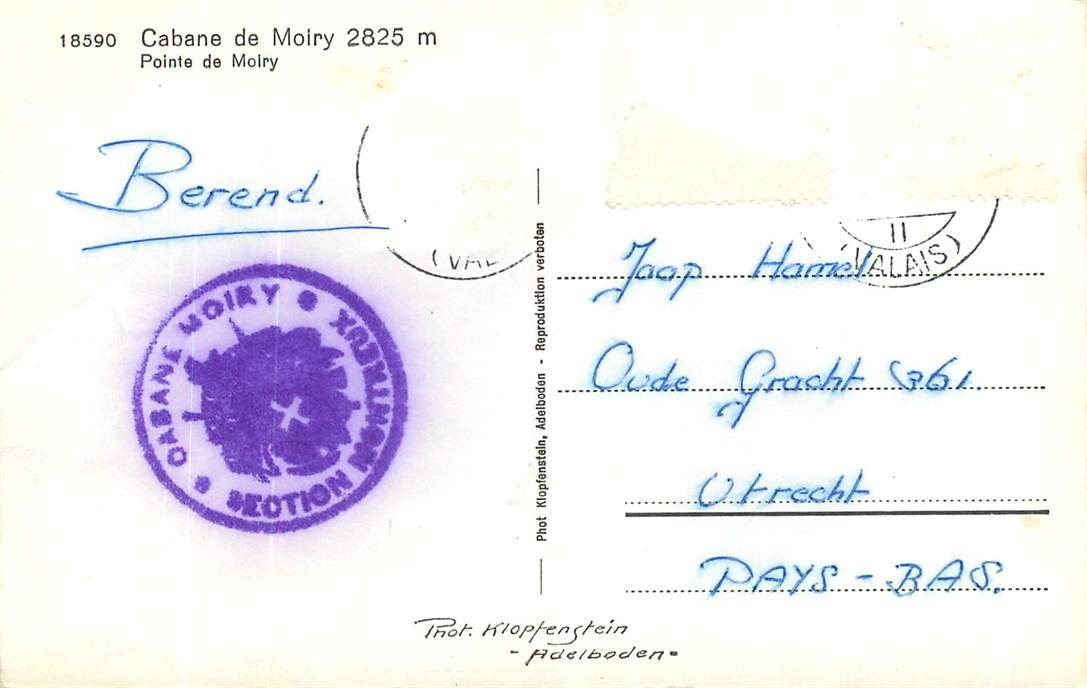 18590 Cabane de Moiry 2825 m
Pointe de Moiry
Berend.
(VAL
II
VALAIS)
CABANE MOIRY
SECTION MONTREUX
Phot Klopfenstein, Adelboden - Reproduktion verboten
Jaap Hamel
Oude Gracht 361.
Utrecht
PAYS-BAS.
Phot. Klopfenstein
- Adelboden -